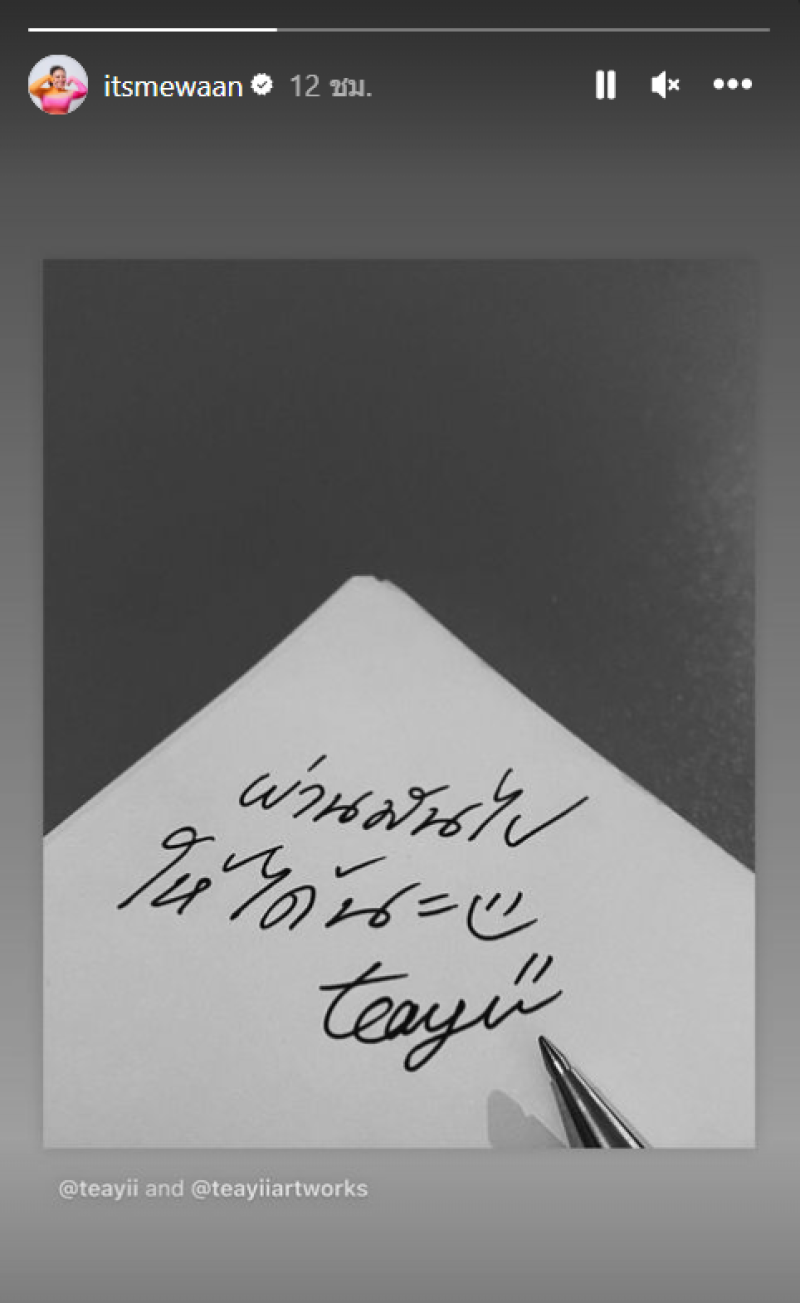 itsmewaan 12 ชม.
ผ่านมันไป
ให้ได้นะ =)
teayii
@teayii and @teayiiartworks